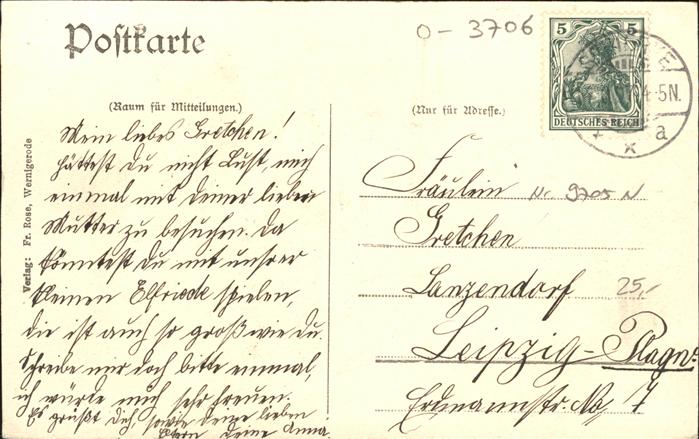 Postkarte
0-3706
5 5
DEUTSCHES REICH
4-5N.
a
(Raum für Mitteilungen.)
(Nur für Adresse.)
Verlag: Fr. Rose, Wernigerode
Mein liebes Gretchen!
hättest Du nicht Lust, mich
einmal mit deiner lieben
Mutter zu besuchen. Da
könntest Du mit unsrer
kleinen Elfriede spielen,
die ist auch so groß wie du.
Schreibe mir doch bitte einmal,
ich würde mich sehr freuen.
Es grüßt Dich, sowie deine lieben
Eltern deine Anna.
Fräulein
Nr 9705 N
Gretchen
Lanzendorf
25,-
Leipzig-Plagw.
Erdmannstr. No 7